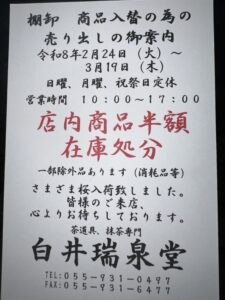 棚卸 商品入替の為の
売り出しの御案内
令和8年2月24日（火）～
3月19日（木）
日曜、月曜、祝祭日定休
営業時間 10:00～17:00
店内商品半額
在庫処分
一部除外品あります（消耗品等）
さまざま桜入荷致しました。
皆様のご来店、
心よりお待ちしております。
茶道具、抹茶専門
白井瑞泉堂
TEL:055-931-0497
FAX:055-931-6477